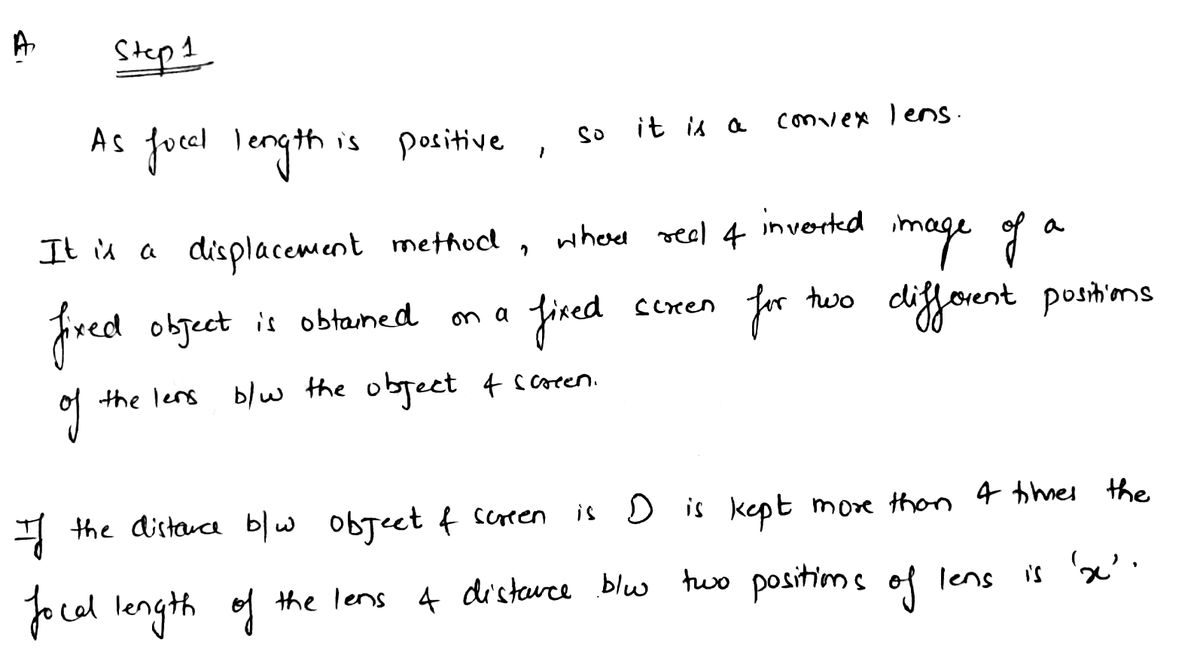 A
Step 1
As focal length is positive, so it is a convex lens.
It is a displacement method, where real & inverted image of a
fixed object is obtained on a fixed screen for two different positions
of the lens b/w the object & screen.
If the distance b/w object & screen is D is kept more than 4 times the
focal length of the lens & distance b/w two positions of lens is 'x'.